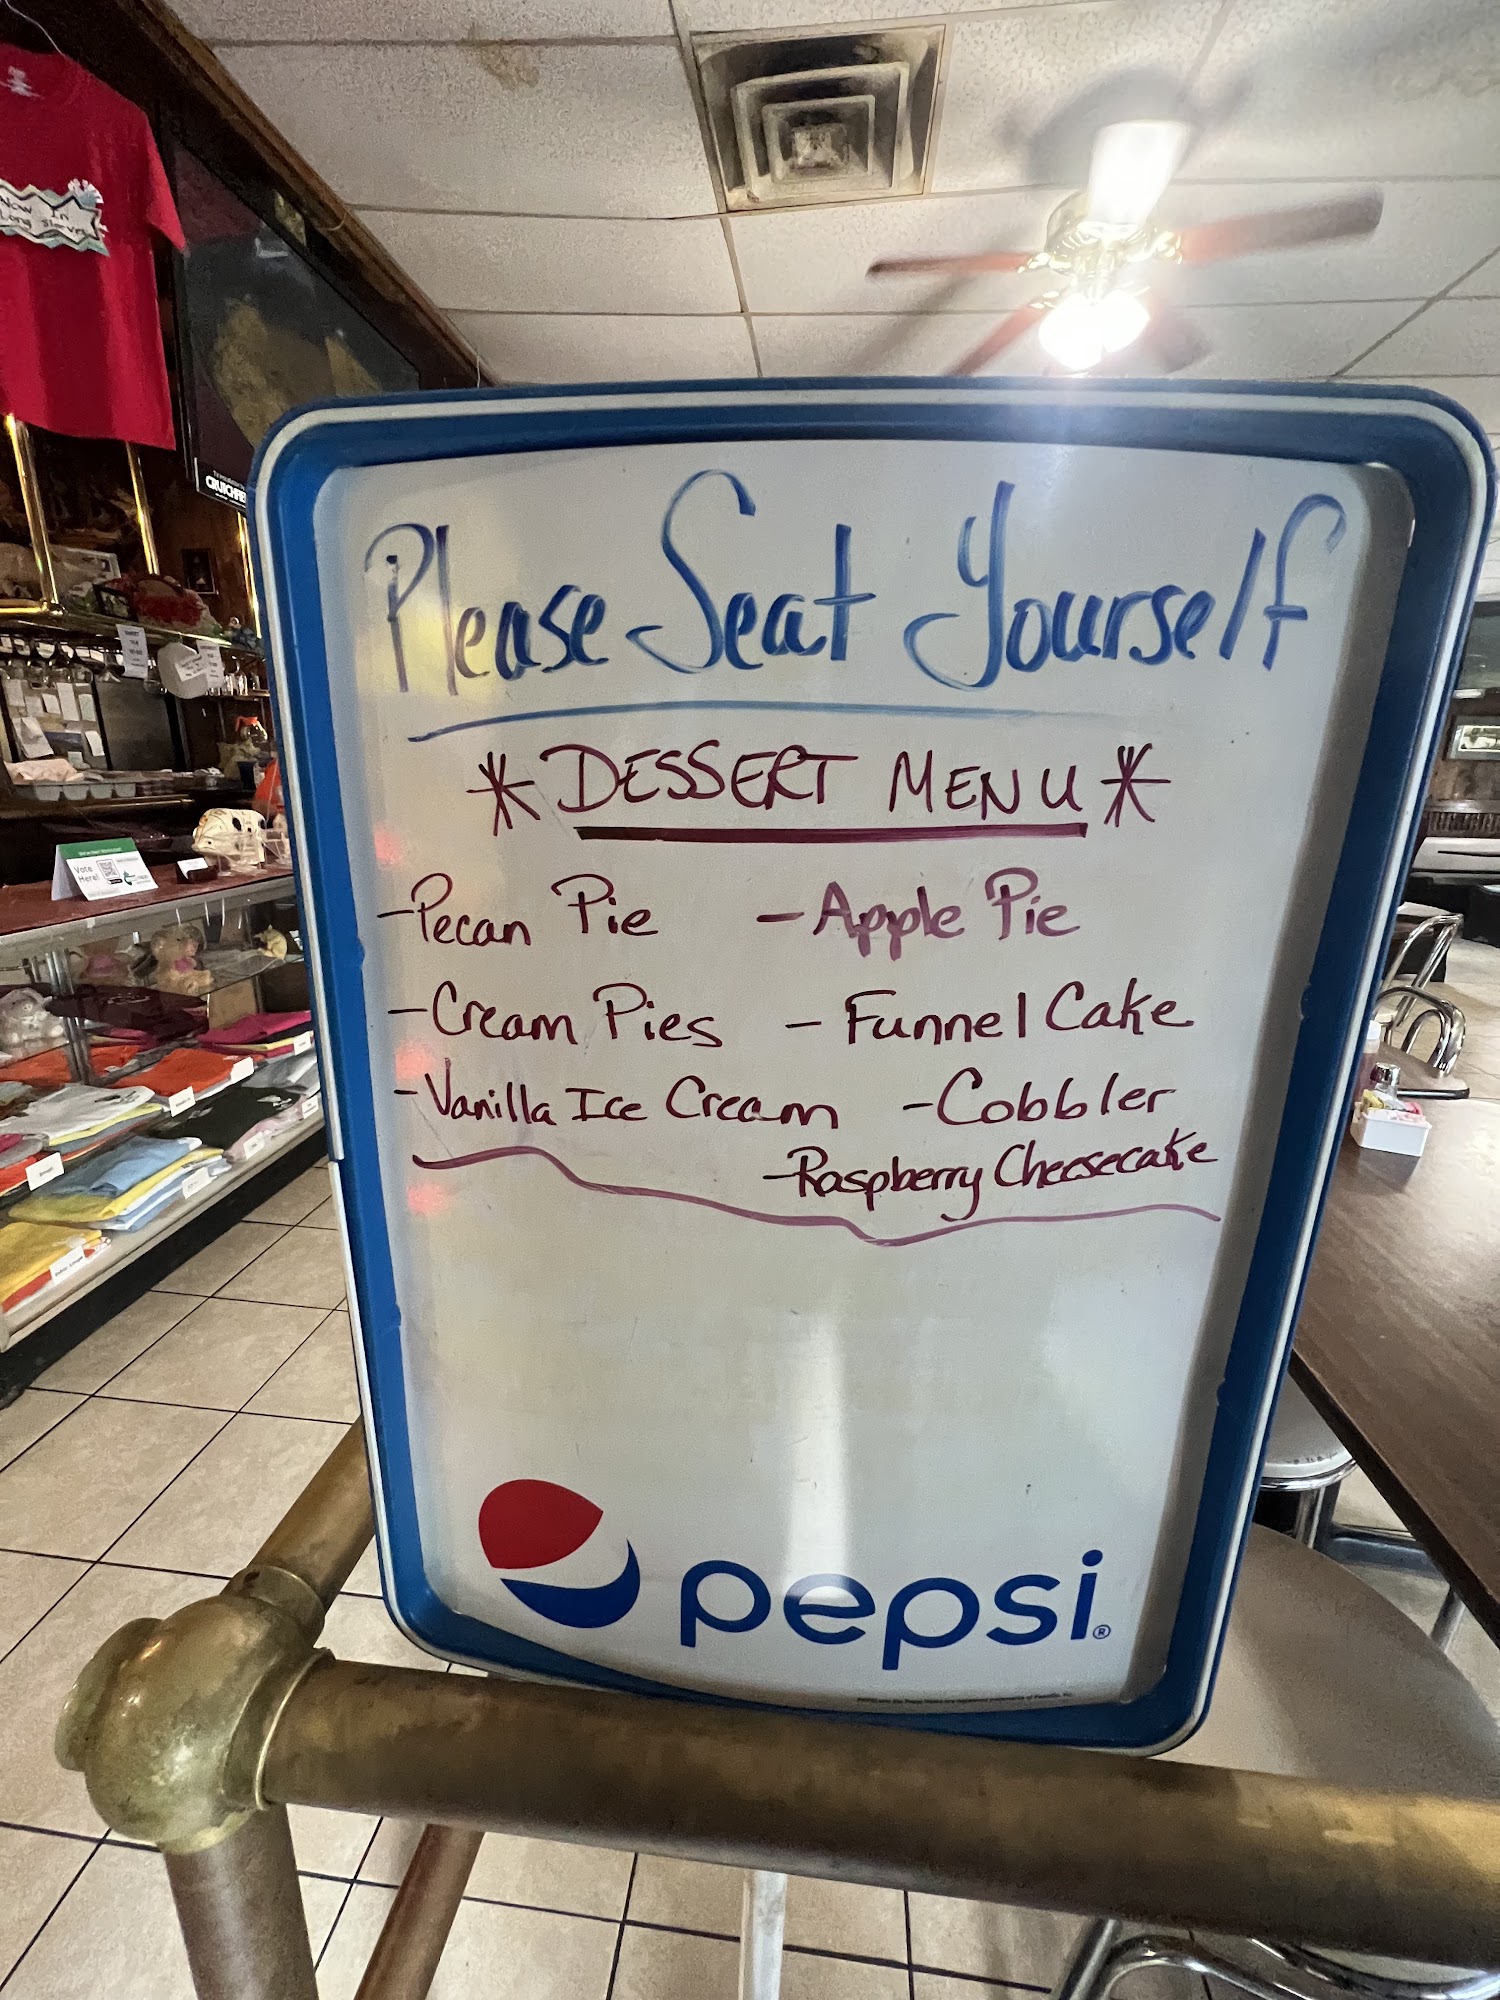 Please Seat Yourself
* DESSERT MENU *
- Pecan Pie - Apple Pie
- Cream Pies - Funnel Cake
- Vanilla Ice Cream - Cobbler
- Raspberry Cheesecake
pepsi®
Now In
Long Sleeves
Vote
Here!